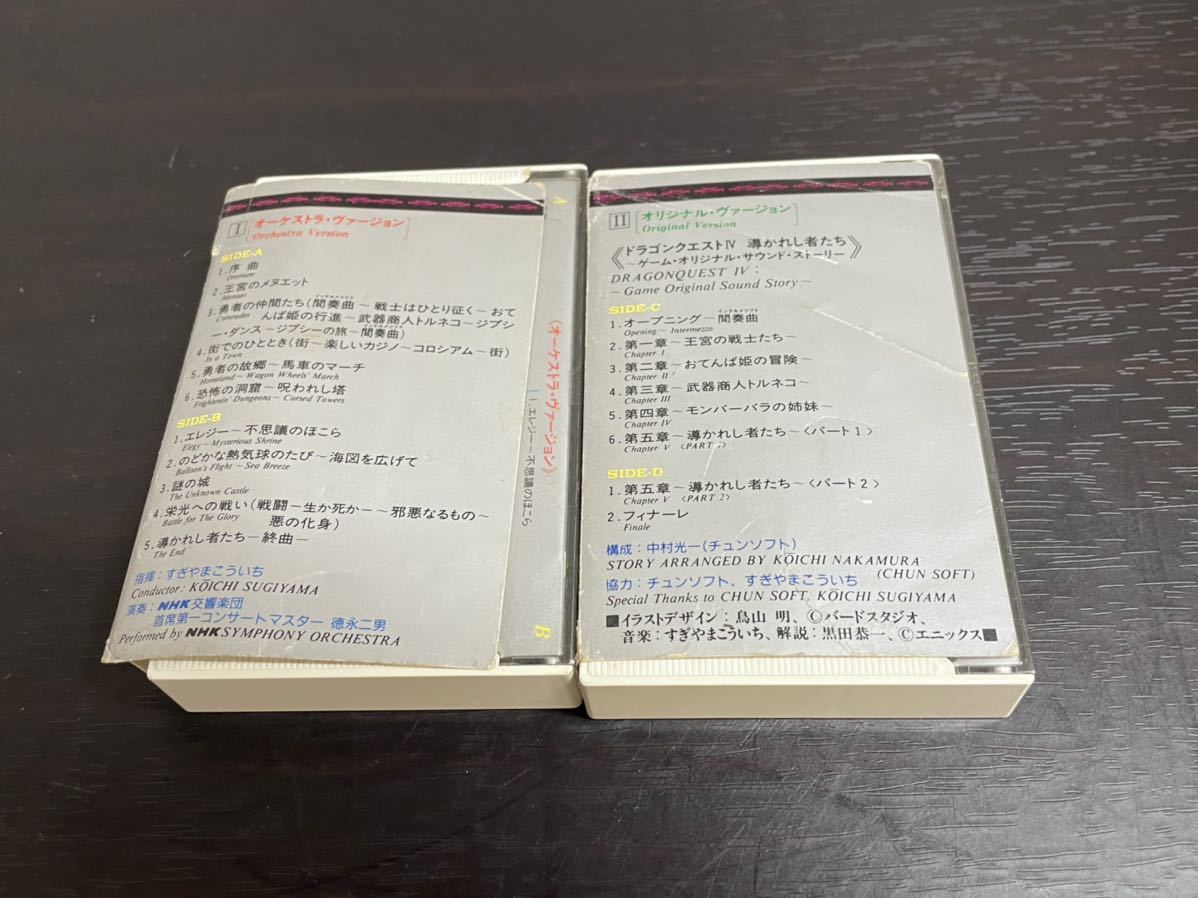 I
オーケストラ・ヴァージョン
Orchestra Version
SIDE-A
1.序曲
Overture
2.王宮のメヌエット
Menuet
3.勇者の仲間たち(間奏曲～戦士はひとり征く～おて
インテルメッツォ
Comrades
んば姫の行進～武器商人トルネコ～ジプシ
ー・ダンス～ジプシーの旅～間奏曲)
インテルメッツォ
4.街でのひととき(街～楽しいカジノ～コロシアム～街)
In a Town
5.勇者の故郷～馬車のマーチ
Homeland～Wagon Wheels' March
6.恐怖の洞窟～呪われし塔
Frightenin' Dungeons～Cursed Towers
SIDE-B
1.エレジー～不思議のほこら
Elegy～Mysterious Shrine
2.のどかな熱気球のたび～海図を広げて
Balloon's Flight～Sea Breeze
3.謎の城
The Unknown Castle
4.栄光への戦い(戦闘―生か死か―～邪悪なるもの～
Battle for The Glory
悪の化身)
5.導かれし者たち―終曲―
The End
指揮:すぎやまこういち
Conductor: KŌICHI SUGIYAMA
演奏:NHK交響楽団
首席第一コンサートマスター 徳永二男
Performed by NHK SYMPHONY ORCHESTRA
A
《オーケストラ・ヴァージョン》
1.エレジー～不思議のほこら
B
II
オリジナル・ヴァージョン
Original Version
《ドラゴンクエストIV 導かれし者たち
～ゲーム・オリジナル・サウンド・ストーリー～》
DRAGONQUEST IV:
～Game Original Sound Story～
SIDE-C
1.オープニング～間奏曲
インテルメッツォ
Opening～Intermezzo
2.第一章～王宮の戦士たち～
Chapter I
3.第二章～おてんば姫の冒険～
Chapter II
4.第三章～武器商人トルネコ～
Chapter III
5.第四章～モンバーバラの姉妹～
Chapter IV
6.第五章～導かれし者たち～〈パート1〉
Chapter V 〈PART 1〉
SIDE-D
1.第五章～導かれし者たち～〈パート2〉
Chapter V 〈PART 2〉
2.フィナーレ
Finale
構成:中村光一(チュンソフト)
STORY ARRANGED BY KŌICHI NAKAMURA
(CHUN SOFT)
協力:チュンソフト、すぎやまこういち
Special Thanks to CHUN SOFT, KŌICHI SUGIYAMA
■イラストデザイン:鳥山 明、©バードスタジオ、
音楽:すぎやまこういち、解説:黒田恭一、©エニックス■